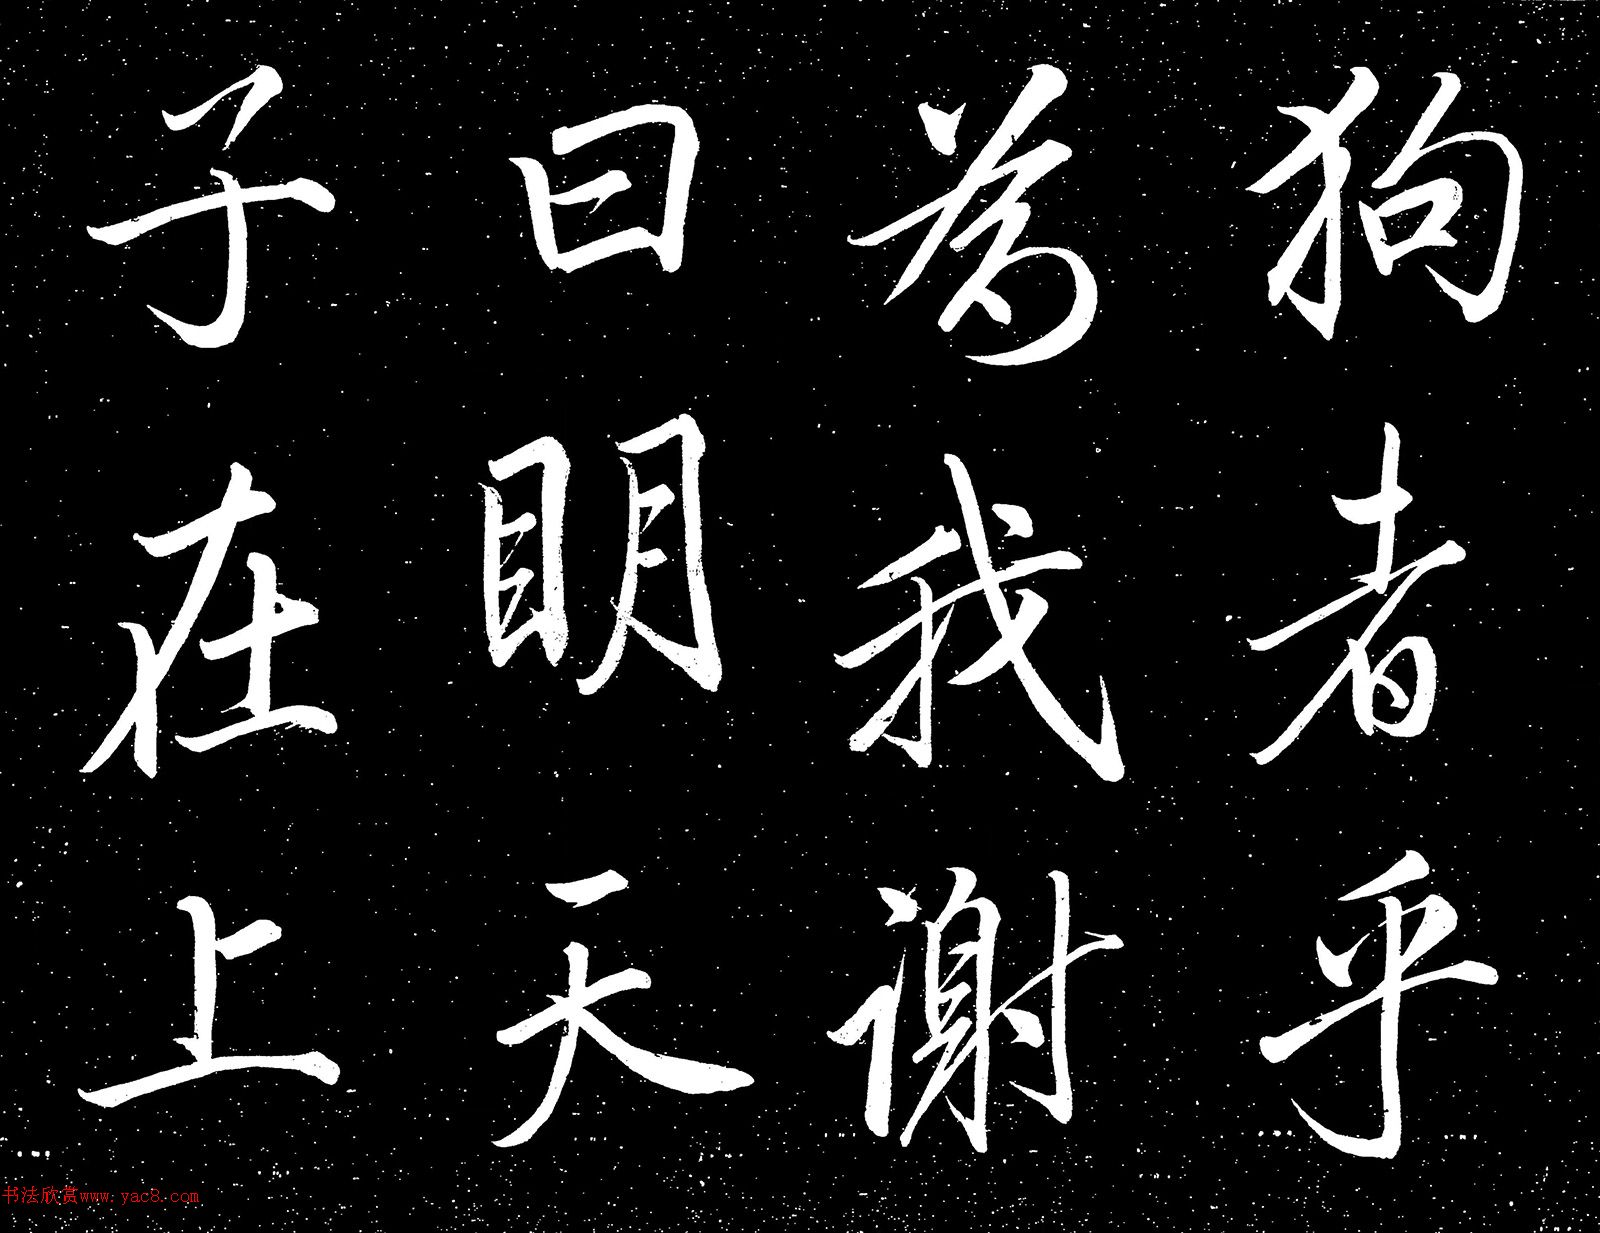 狗者乎
為我謝
曰明天
子在上
书法欣赏www.yac8.com